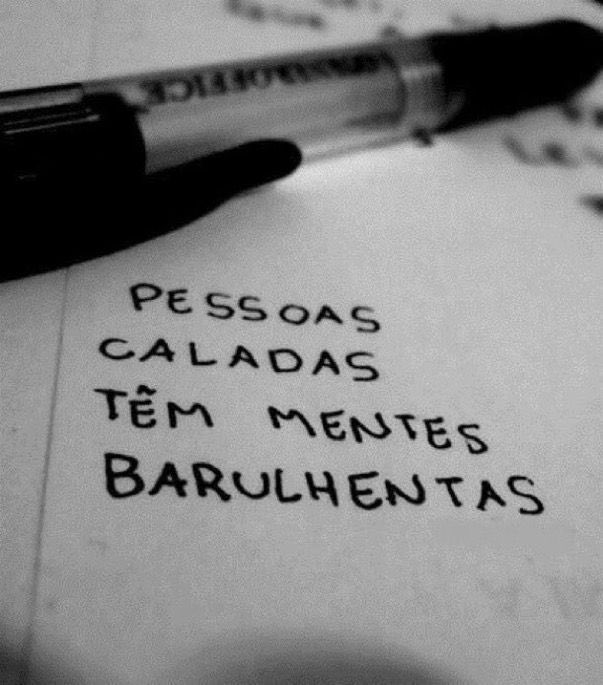 PESSOAS
CALADAS
TÊM MENTES
BARULHENTAS